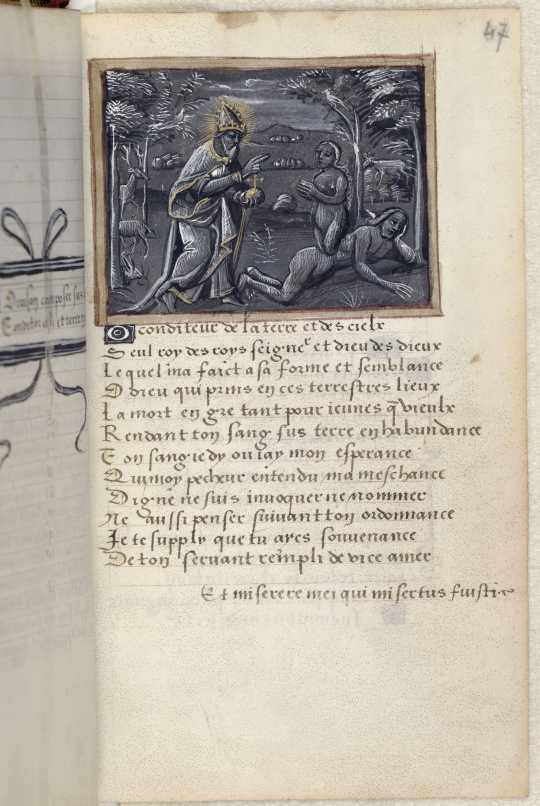 47
Oraison composee sus
Conditor celi et terre
O conditeur de la terre et des cielx
Seul roy des roys seigneʳ et dieu des dieux
Lequel ma faict a sa forme et semblance
O dieu qui prins en ces terrestres lieux
La mort en gre tant pour ieunes q̃ vieulx
Rendant ton sang sus terre en habundance
Ton sang ie dy ou iay mon esperance
Qui moy pecheur entendu ma meschance
Digne ne suis inuoquer ne nommer
Ne aussi penser suiuant ton ordonnance
Je te supply que tu ayes souuenance
De ton seruant rempli de vice amer
Et miserere mei qui misertus fuisti